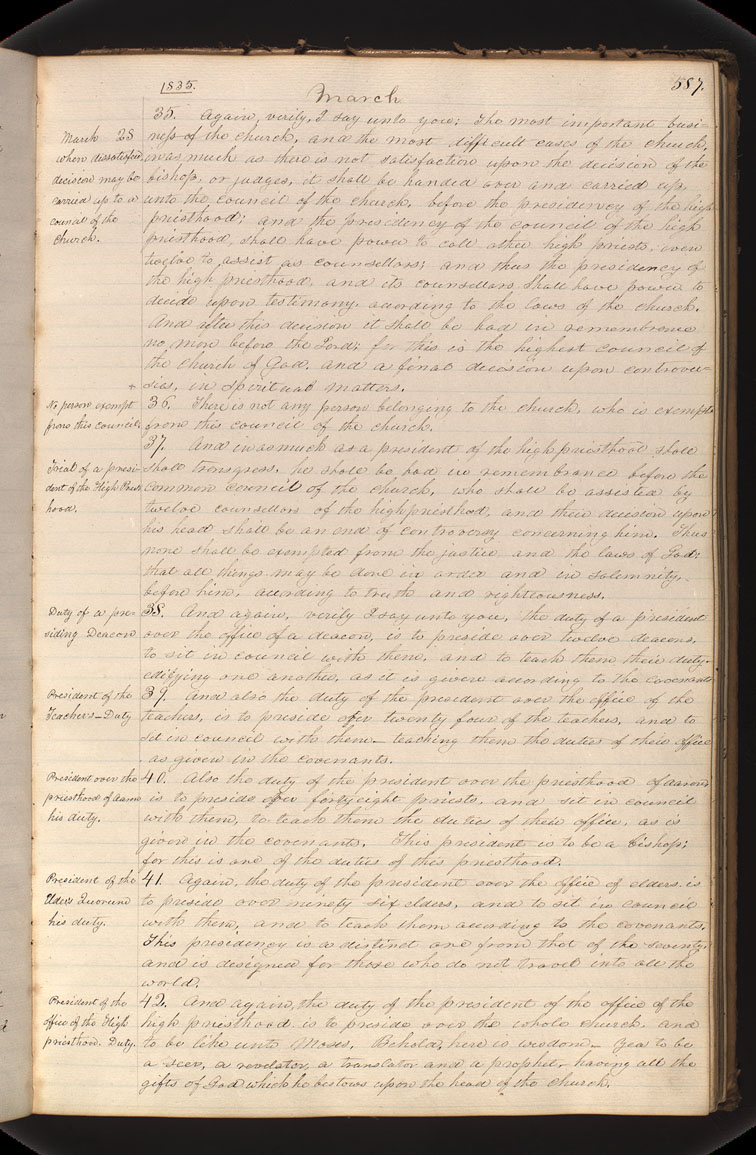 1835.
587.
March
March 28
when dissatisfied
decision may be
carried up to a
council of the
Church.
35. Again, verily, I say unto you; The most important busi-
ness of the church, and the most difficult cases of the church,
inasmuch as there is not satisfaction upon the decision of the
bishop, or judges, it shall be handed over and carried up,
unto the council of the church, before the presidency of the high
priesthood; and the presidency of the council of the high
priesthood, shall have power to call other high priests, even
twelve to assist as counsellors; and thus the presidency of
the high priesthood, and its counsellors shall have power to
decide upon testimony, according to the laws of the church.
And after this decision it shall be had in remembrance
no more before the Lord; for this is the highest council of
the church of God, and a final decision upon controver-
sies, in spiritual matters.
+
No person exempt
from this council
36. There is not any person belonging to the church, who is exempt
from this council of the church.
Trial of a presi-
dent of the High Priest
hood.
37. And inasmuch as a president of the high priesthood shall
shall transgress, he shall be had in remembrance before the
common council of the church, who shall be assisted by
twelve counsellors of the high priesthood; and their decision upon
his head shall be an end of controversy concerning him. Thus
none shall be exempted from the justice and the laws of God;
that all things may be done in order and in solemnity,
before him, according to truth and righteousness.
Duty of a pre-
siding Deacon
38. And again, verily I say unto you, the duty of a president
over the office of a deacon, is to preside over twelve deacons,
to sit in council with them, and to teach them their duty-
edifying one another, as it is given according to the covenants
President of the
Teachers–Duty
39. And also the duty of the president over the office of the
teachers, is to preside over twenty four of the teachers, and to
sit in council with them– teaching them the duties of their office
as given in the covenants.
President over the
priesthood of Aaron
his duty.
40. Also the duty of the president over the priesthood of Aaron
is to preside over forty eight priests, and sit in council
with them, to teach them the duties of their office, as is
given in the covenants. This president is to be a bishop;
for this is one of the duties of this priesthood.
President of the
Elders Quorum
his duty.
41. Again, the duty of the president over the office of elders is
to preside over ninety six elders, and to sit in council
with them, and to teach them according to the covenants.
This presidency is a distinct one from that of the seventy,
and is designed for those who do not travel into all the
world.
President of the
office of the High
priesthood. Duty.
42. And again, the duty of the president of the office of the
high priesthood is to preside over the whole church, and
to be like unto Moses. Behold, here is wisdom– yea to be
a seer, a revelator, a translator and a prophet– having all the
gifts of God which he bestows upon the head of the church.